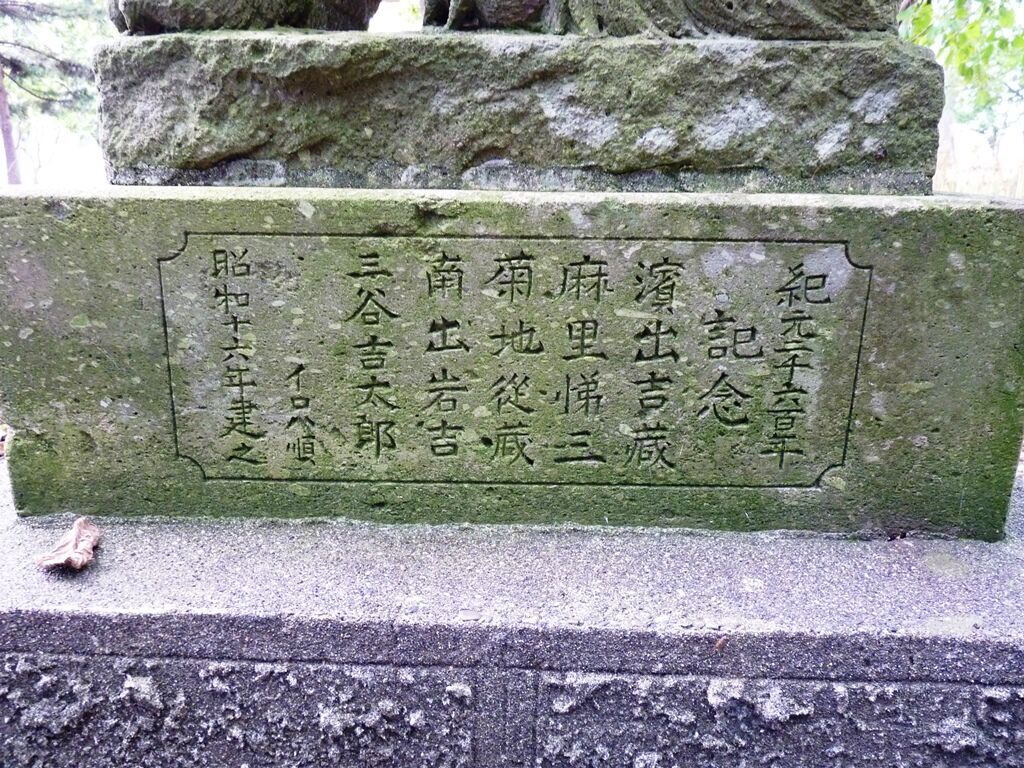 紀元二千六百年
記念
濱出吉蔵
麻里悌三
菊地從蔵
南出岩吉
三谷吉太郎
イロハ順
昭和十六年建之